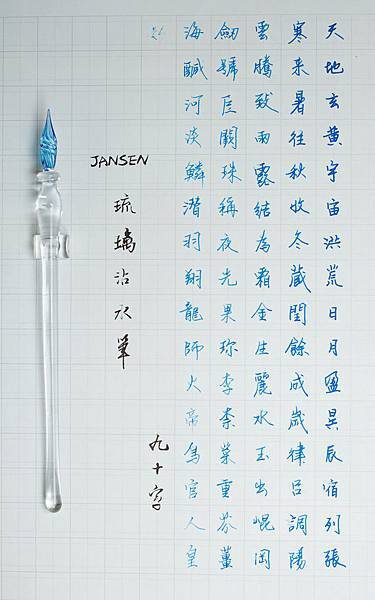 天地玄黃宇宙洪荒日月盈昃辰宿列張
寒来暑往秋收冬藏閏餘成歲律呂調陽
雲騰致雨露結為霜金生麗水玉出崐岡
劍號巨闕珠稱夜光果珍李柰菜重芥薑
海鹹河淡鱗潛羽翔龍師火帝鳥官人皇
JANSEN
琉璃沾水筆
九十字